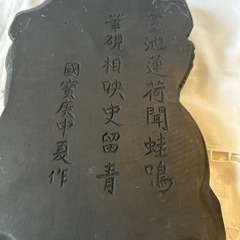 墨池蓮荷聞蛙鳴
筆硯相映史留青
國寶庚申夏作